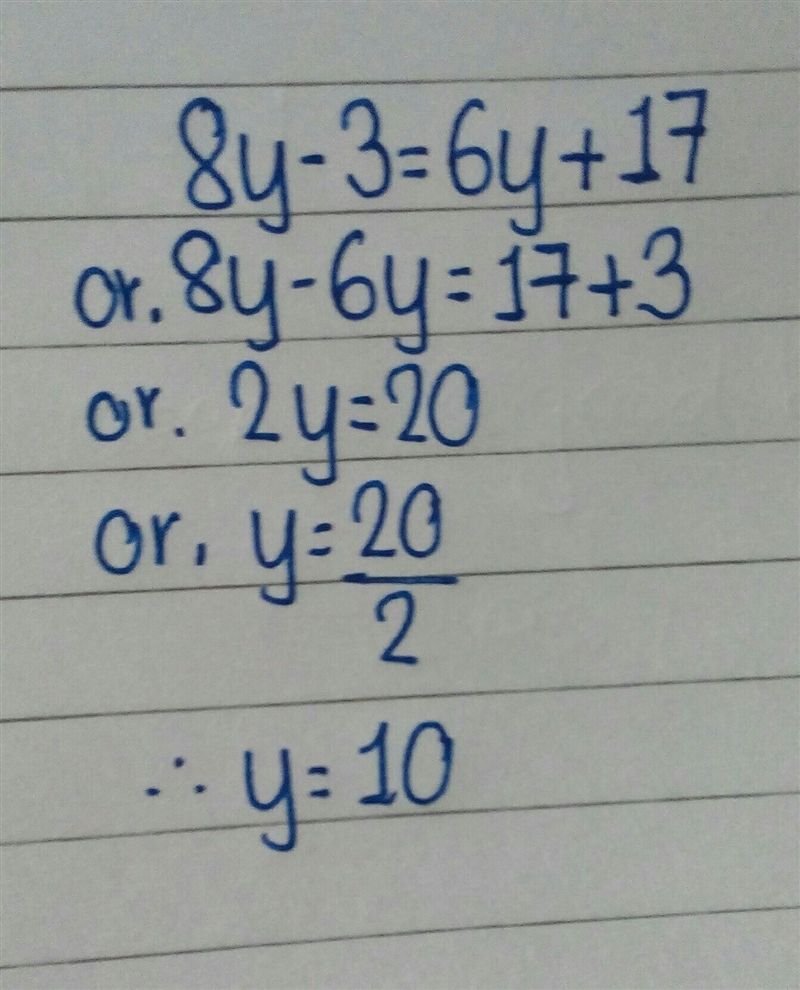 8y-3=6y+17
or. 8y-6y=17+3
or. 2y=20
or, y=20/2
∴ y=10